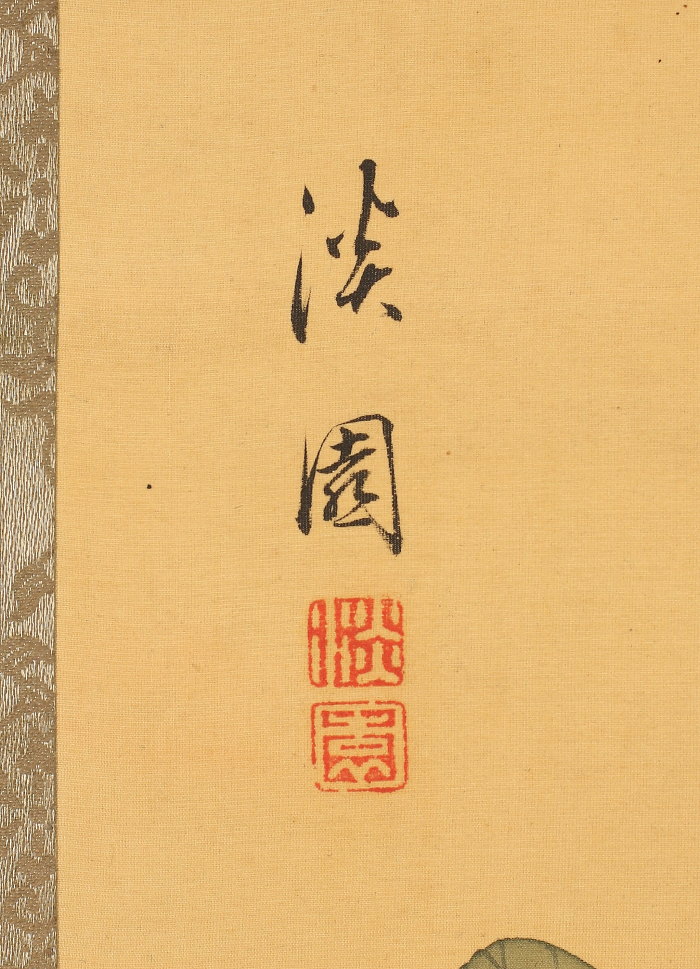 淡園
淡
園